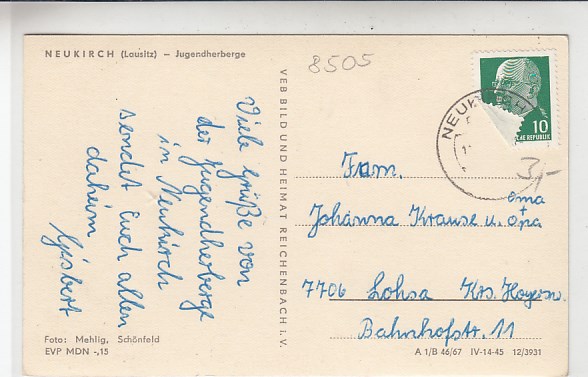 NEUKIRCH (Lausitz) – Jugendherberge
8505
Viele Grüße von
der Jugendherberge
in Neukirch
sendet Euch allen
daheim
Gisbert
VEB BILD UND HEIMAT REICHENBACH i. V.
NEUKIRCH
10
REPUBLIK
3,-
Fam.
Johanna Krause u. oma + opa
7706 Lohsa Krs. Hoyersw.
Bahnhofstr. 11
Foto: Mehlig, Schönfeld
EVP MDN -,15
A 1/B 46/67 IV-14-45 12/3931